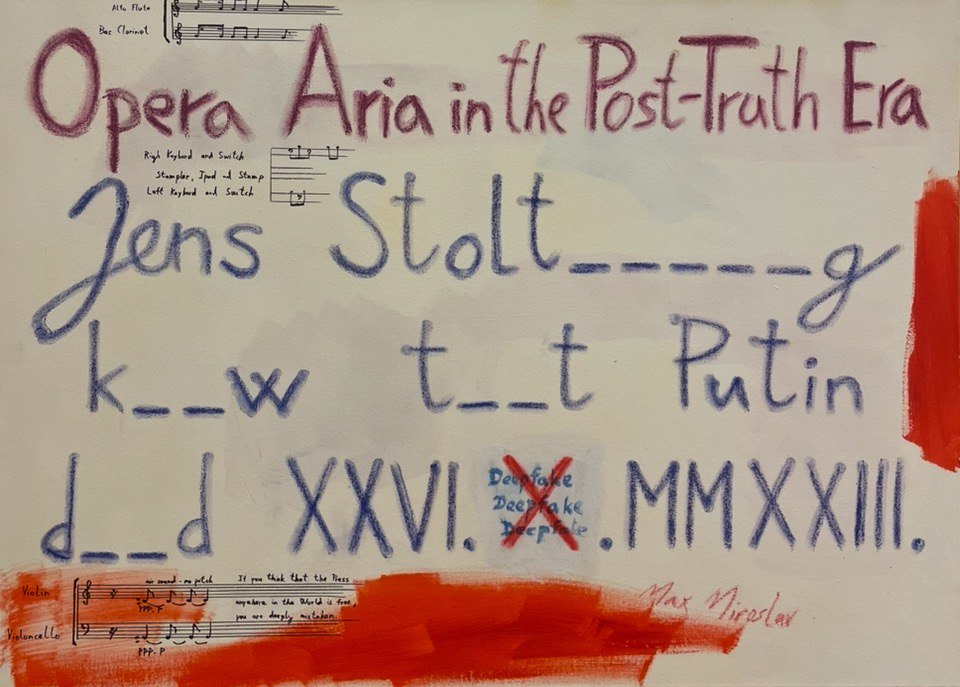 Alto Flute
Bas Clarinet
Opera Aria in the Post-Truth Era
Righ Keybord and Switch
Stampler, Ipad and Stamp
Left Keybord and Switch
Jens Stolt______g
k__w t__t Putin
d__d XXVI. X .MMXXIII.
Deepfake
Deepfake
Deepfake
Violin
Violoncello
air sound - no pitch
PPP. F
PPP. P
If you think that the Press
anywhere in the World is free,
you are deeply mistaken.
Max Miroslav